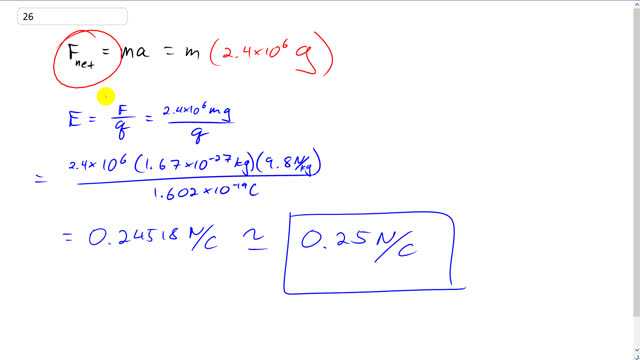 26
F_net = ma = m (2.4×10⁶ g)
E = F/q = 2.4×10⁶ mg/q
= 2.4×10⁶ (1.67×10⁻²⁷ kg)(9.8 N/kg) / 1.602×10⁻¹⁹ C
= 0.24518 N/C ≃ 0.25 N/C